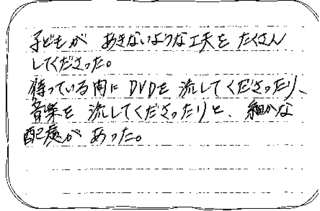 子どもが あきないような工夫を たくさん
してくださった。
待っている間に DVDを 流してくださったり、
音楽を 流してくださったりと、細かな
配慮が あった。